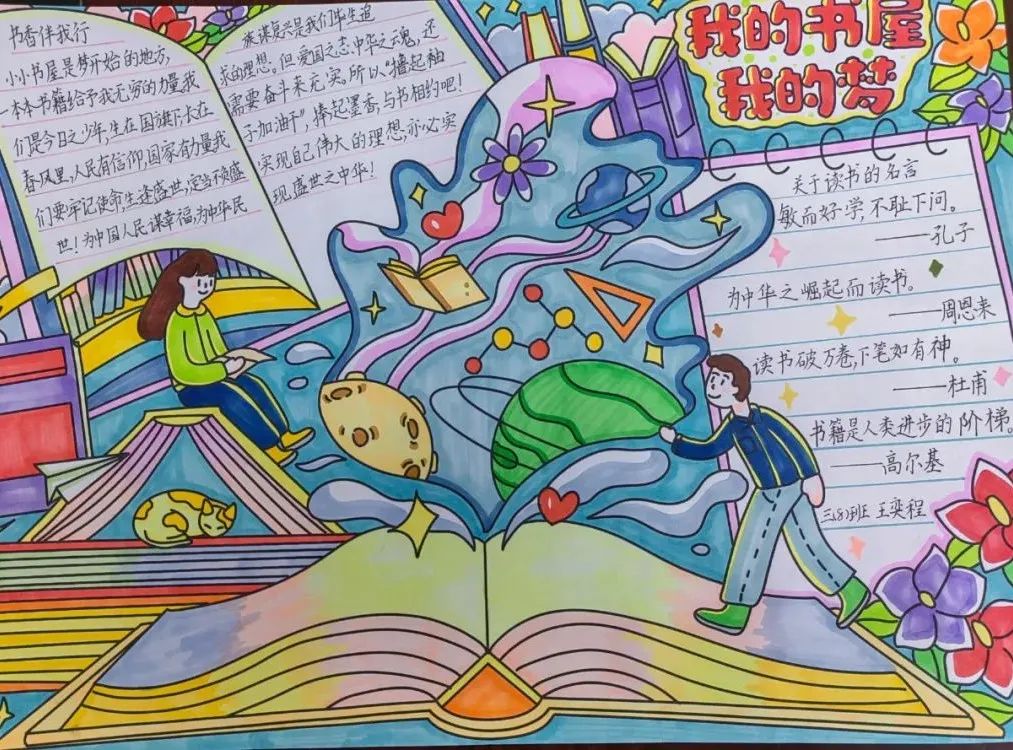 我的书屋
我的梦
书香伴我行
小小书屋是梦开始的地方,
一本本书籍给予我无穷的力量,我
们是今日之少年,生在国旗下,长在
春风里,人民有信仰,国家有力量,我
们要牢记使命,生逢盛世,定当不负盛
世!为中国人民谋幸福,为中华民
族谋复兴是我们毕生追
求的理想。但爱国之志,中华之魂,还
需要奋斗来充实。所以“撸起袖
子加油干”,捧起墨香,与书相约吧!
实现自己伟大的理想,亦必实
现盛世之中华!
关于读书的名言
敏而好学,不耻下问。
——孔子
为中华之崛起而读书。
——周恩来
读书破万卷,下笔如有神。
——杜甫
书籍是人类进步的阶梯。
——高尔基
三(8)班 王奕程